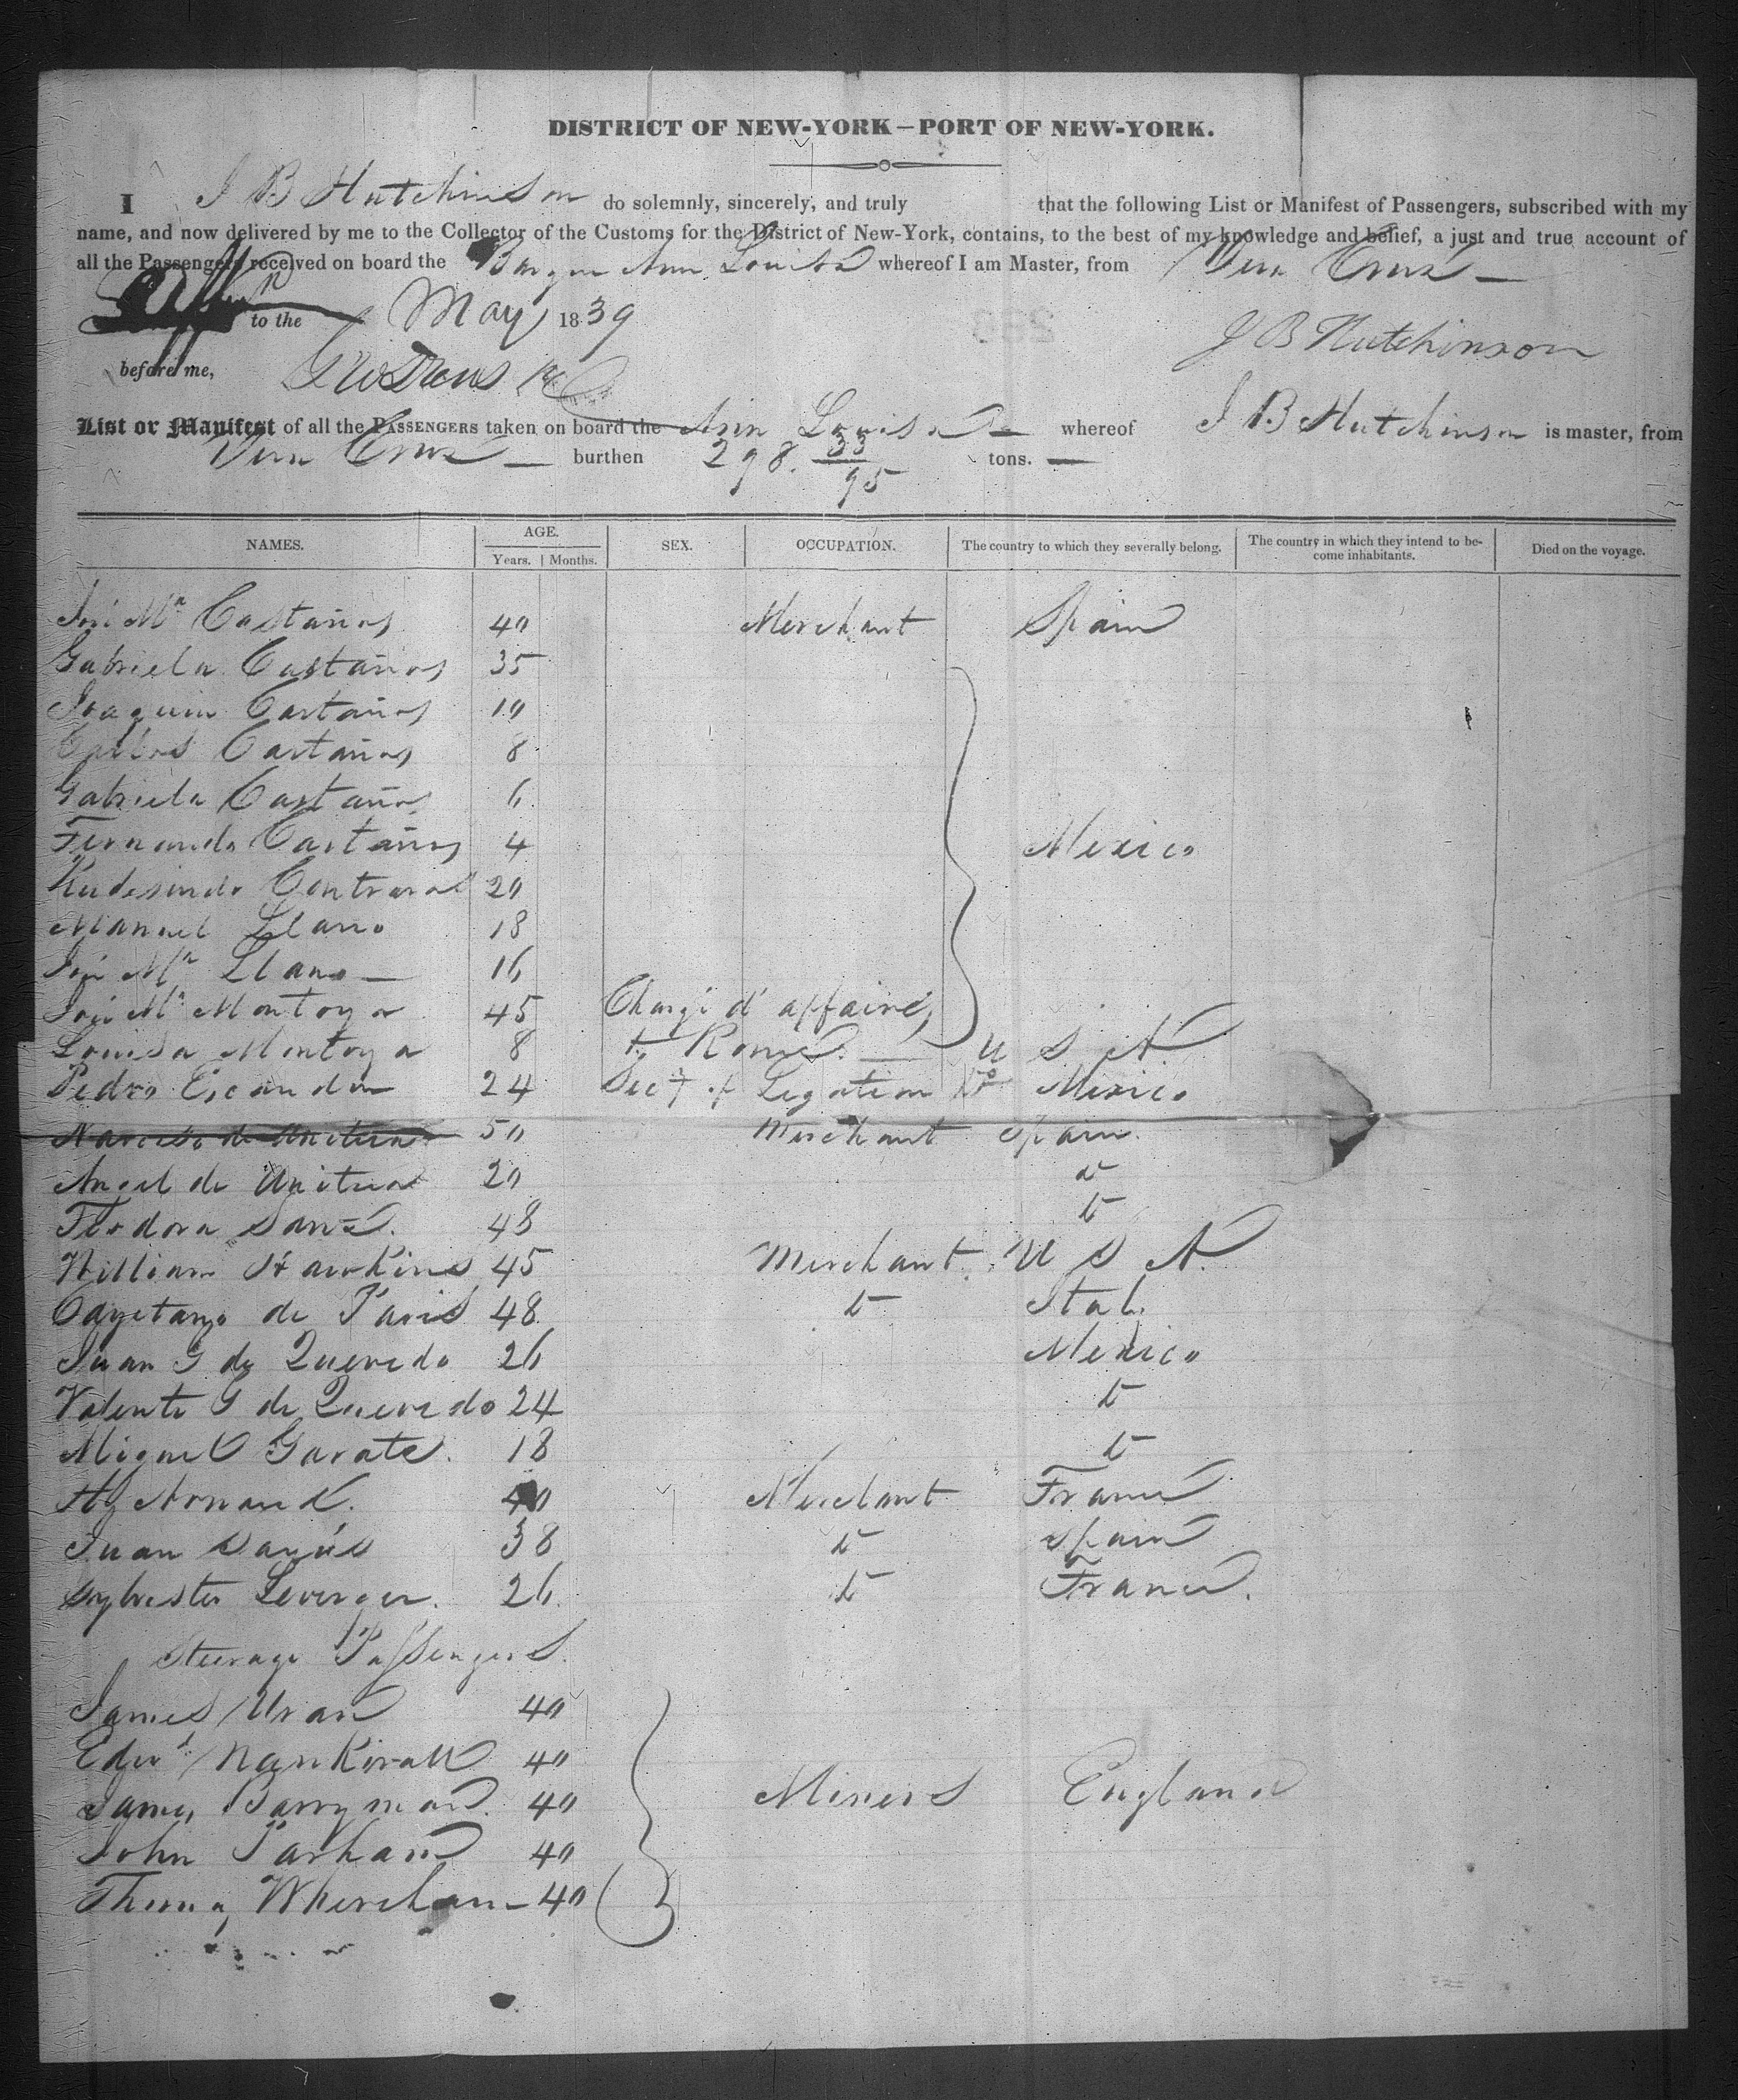 DISTRICT OF NEW-YORK—PORT OF NEW-YORK.
I J B Hutchinson do solemnly, sincerely, and truly that the following List or Manifest of Passengers, subscribed with my
name, and now delivered by me to the Collector of the Customs for the District of New-York, contains, to the best of my knowledge and belief, a just and true account of
all the Passengers received on board the Barque Ann Louisa whereof I am Master, from Vera Cruz
to the May 1839
J B Hutchinson
before me,
List or Manifest of all the PASSENGERS taken on board the Ann Louisa whereof J B Hutchinson is master, from
Vera Cruz burthen 298. 33/95 tons.
NAMES. AGE. SEX. OCCUPATION. The country to which they severally belong. The country in which they intend to be- Died on the voyage.
Years. Months. come inhabitants.
José Ma Castaños 40 Merchant Spain
Gabriela Castaños 35
Joaquin Castaños 10
Carlos Castaños 8
Gabriela Castaños 6
Fernando Castaños 4 Mexico
Rudesindo Contreras 20
Manuel Llano 18
José Ma Llano 16
José Ma Montoya 45 Chargé d'affaires
Louisa Montoya 8 to Rome U S A
Pedro Escandon 24 Secy of Legation Do Mexico
Narciso de Unitua 50 Merchant Spain.
Angel de Unitua 20 do
Teodora Sanz. 48 do
William Hawkins 45 Merchant U S A
Cayetano de Paris 48 do Italy
Juan G de Quevedo 26 Mexico
Valente G de Quevedo 24 do
Miguel Garate. 18 do
Hy 40 Merchant France
Juan 38 do Spain
Sylvester Leverger. 26 do France.
Steerage Passengers.
James Uran 40
Edwd Nankivall 40
James Barryman 40 Miners England
John Parham 40
Thomas Wherehan 40